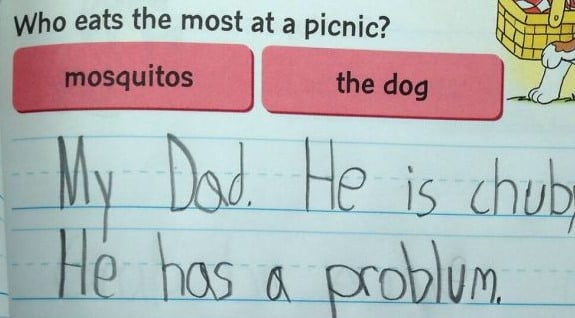 Who eats the most at a picnic?
mosquitos the dog
My Dad. He is chuby
He has a problum.